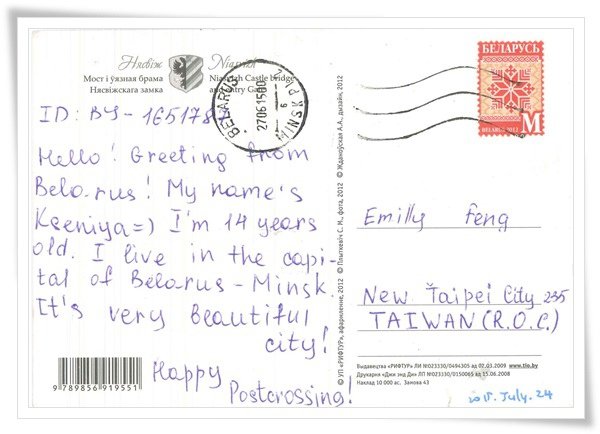 Нясвіж
Niasviž
Мост і ўязная брама
Niasvizh Castle bridge
Нясвіжскага замка
and Entry Gate
БЕЛАРУСЬ
BELARUS 2012
M
BELARUS
MINSK PI
270615-00
6
ID: BY-1651784
Hello! Greeting from
Belarus! My name's
Kseniya=) I'm 14 years
old. I live in the capi-
tal of Belarus - Minsk.
It's very beautiful
city!
Happy
Postcrossing!
Emilly Feng
New Taipei City 235
TAIWAN (R.O.C.)
9 789856 919551
© УП «РИФТУР», афармленне, 2012 © Плыткевіч С. М., фота, 2012 © Ждановская А.А., дызайн, 2012
Выдавецтва «РИФТУР» ЛИ №023330/0494305 ад 02.03.2009 www.tio.by
Друкарня «Джи энд Ди» ЛП №023330/0150065 ад 15.06.2008
Наклад 10 000 ас. Замова 43
2015. July. 24